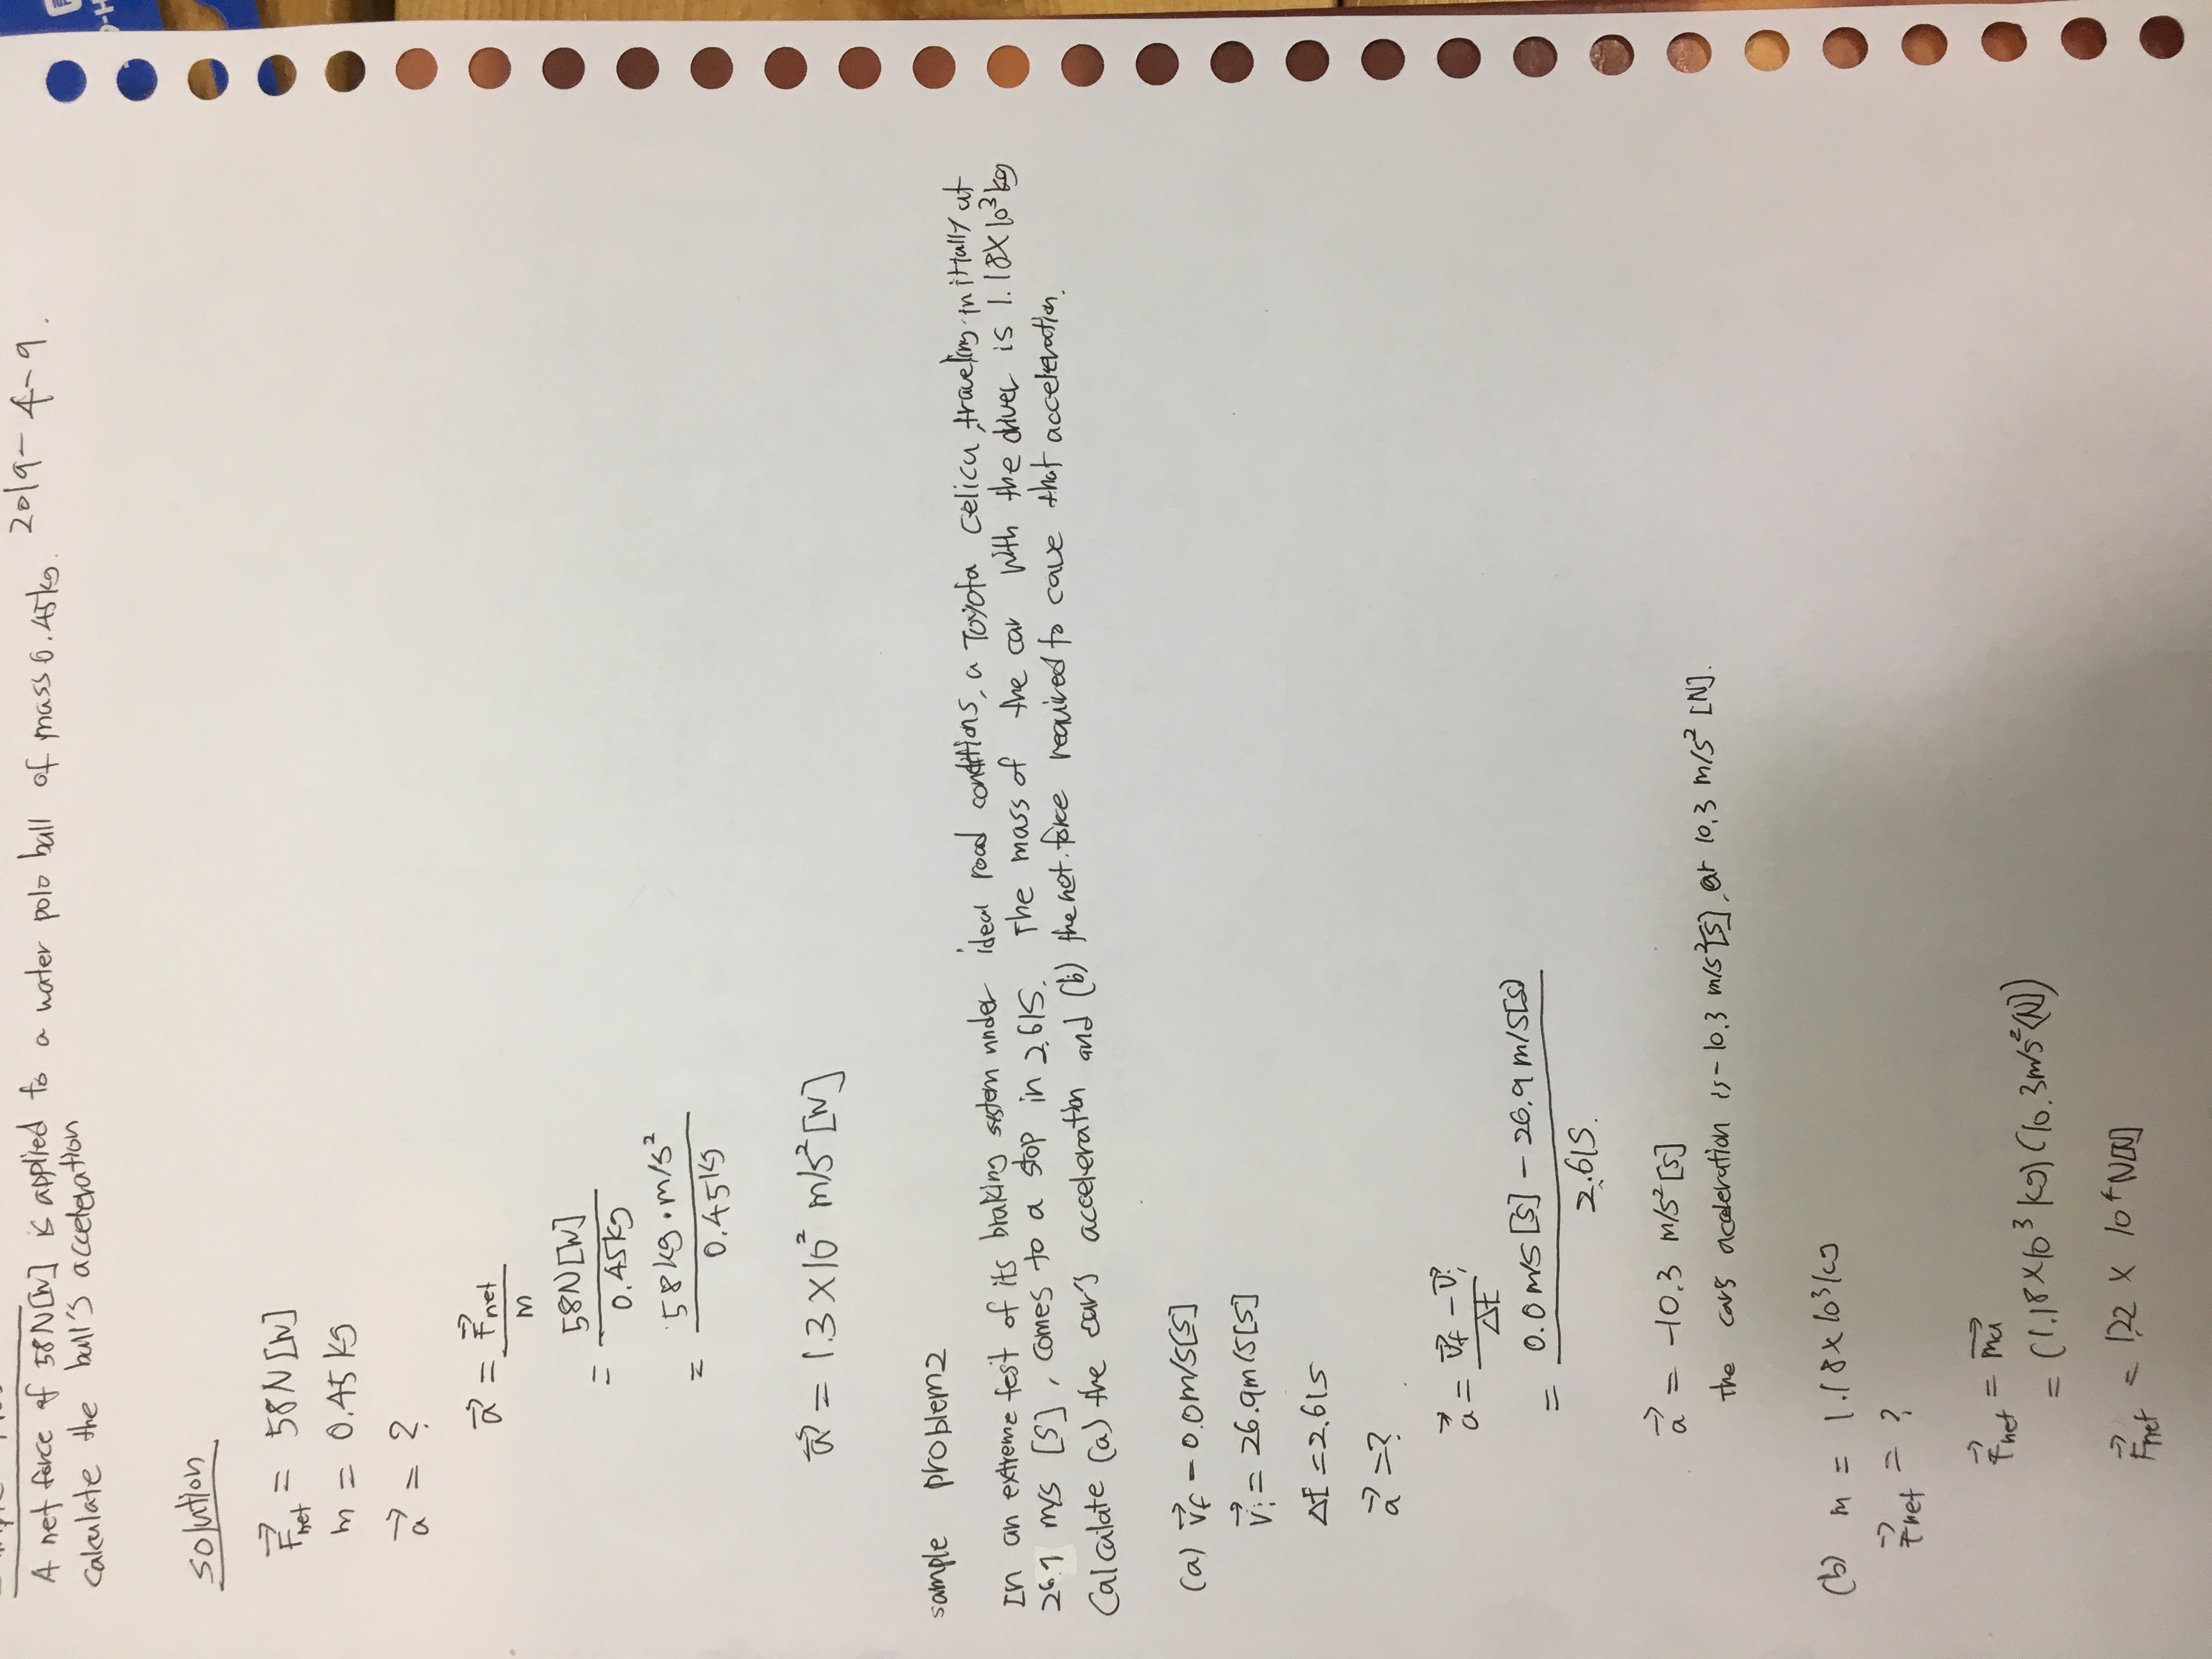 2019-4-9.
A net force of 58N[W] is applied to a water polo ball of mass 0.45kg.
Calculate the ball's acceleration
Solution
F⃗net = 58N[W]
m = 0.45kg
a⃗ = ?
a⃗ = F⃗net / m
= 58N[W] / 0.45kg
= 58kg·m/s² / 0.45kg
a⃗ = 1.3×10² m/s²[W]
sample problem2
In an extreme test of its braking system under ideal road conditions, a Toyota celica, traveling initially at
26.9 m/s [S], comes to a stop in 2.61s. The mass of the car with the driver is 1.18×10³kg
Calcalate (a) the car's acceleration and (b) the net force required to cause that acceleration.
(a) v⃗f = 0.0m/s[S]
v⃗i = 26.9m/s[S]
Δt = 2.61s
a⃗ = ?
a⃗ = v⃗f - v⃗i / Δt
= 0.0 m/s [S] - 26.9 m/s[S] / 2.61s.
a⃗ = -10.3 m/s²[S]
the cars acceleration is -10.3 m/s²[S], or 10.3 m/s² [N].
(b) m = 1.18×10³kg
F⃗net = ?
F⃗net = ma⃗
= (1.18×10³ kg)(10.3m/s²[N])
F⃗net = 1.22 × 10⁴ N[N]